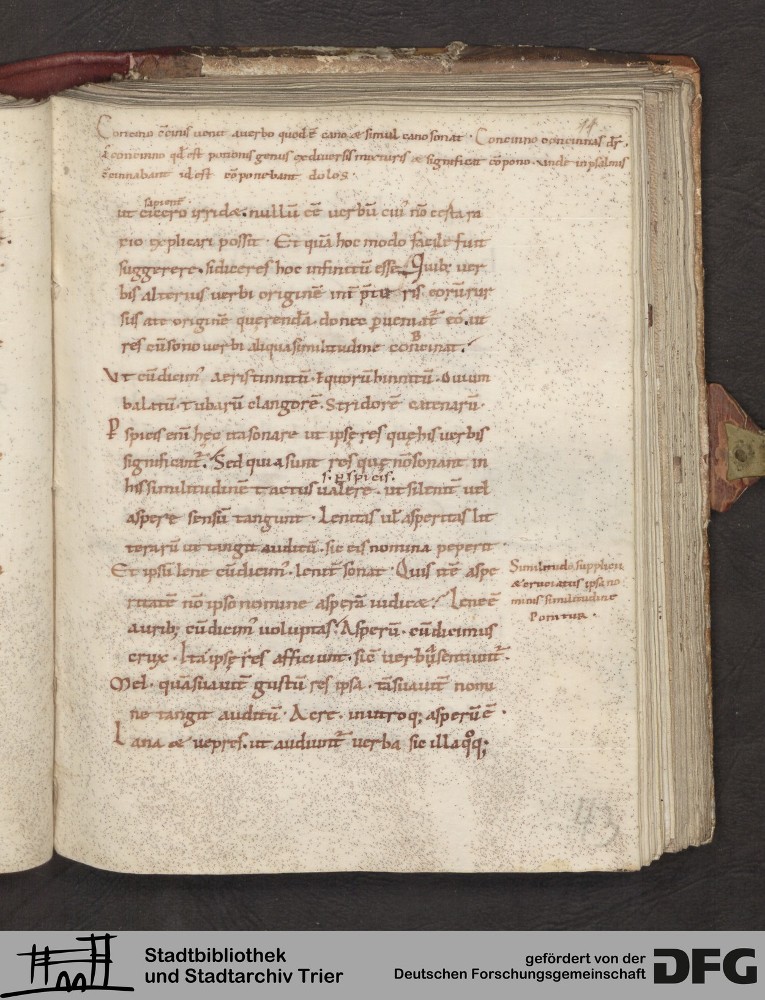 Concino c̄cinis uenit a uerbo quod ē cano & simul cano sonat · Concinno concinnas dr̄ ·
A concinno qd̄ est potionis genus ex diuersis mixturis & significat cōpono · unde in psalmis
c̄cinnabant id est cōponebant dolos ·
14
sapient̄
ut cicero irridæ · nullū eē uerbū cui᾽ nō certa ra
tio explicari possit · Et quā hoc modo facile fuit
suggerere · si diceres hoc infinitū esse · Quib; uer
bis alterius uerbi originē
eorū rur
sus ate originē querendā · donec pueniat̄ eo · ut
res cū sono uerbi aliqua similitudine concinat ·
Vt cū dicim᾽ aeris tinnitū · equorū hinnitū · Ouium
balatū · tubarū clangorē · Stridorē catenarū ·
Pspicis enī hęc ita sonare ut ipsę res quę his uerbis
significant̄ · Sed quia sunt res quę nō sonant in
s · pspicis ·
his similitudinē tactus ualere · ut si lenit̄ uel
aspere sensū tangunt · Lenitas ul̄ asperitas lit
terarū ut tangit auditū · sic eis nomina peperit ·
Et ipsū lene cū dicim᾽ · lenit̄ sonat · Quis itē aspe
ritatē nō ipso nomine asperā iudicæ? Lene ē
aurib; cū dicim᾽ uoluptas · Asperū · cū dicimus
crux · Ita ipsę res afficiunt · sic uerba sentiunt̄ ·
Mel · quā suauit̄ gustū res ipsa · tā suauit̄ nomi
ne tangit auditū · Acre · in utroq; asperū ē ·
Lana & uepres · ut audiunt̄ uerba sic illa
Similitudo supplicii
& cruciatus ipsa no
minis similitudine
Ponitur ·
43
Stadtbibliothek
und Stadtarchiv Trier
gefördert von der
Deutschen Forschungsgemeinschaft
DFG